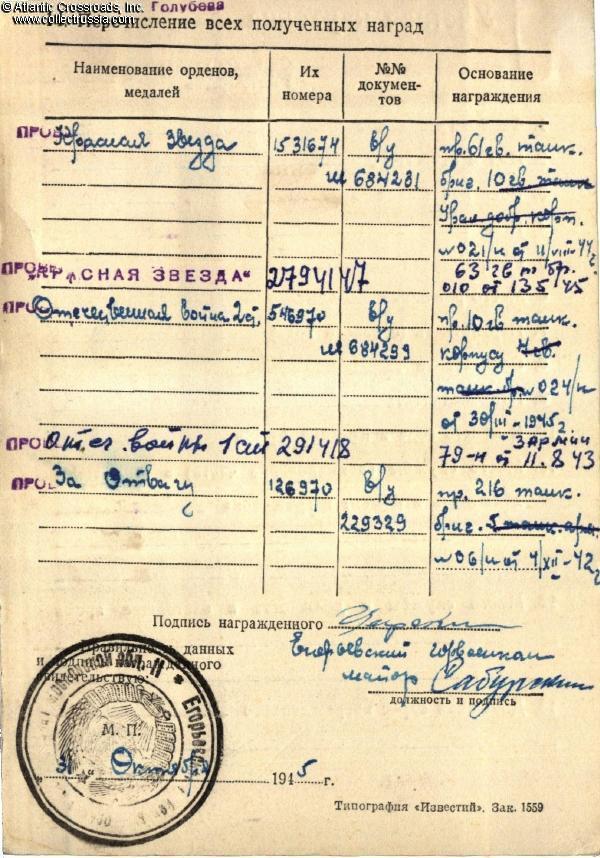 © Atlantic Crossroads, Inc.
www.collectrussia.com
Голубева
Перечисление всех полученных наград
Наименование орденов, медалей
Их номера
№№ документов
Основание награждения
Красная Звезда 1531674 в/у пр. 61 гв. танк.
м 684231 бриг. 10 гв. танк
Урал. добр. корп.
№021/н от 11/VIII-44г
"КРАСНАЯ ЗВЕЗДА" 2794147 63 гв т бр.
010 от 13 5 45
Отечественная война 2 ст. 546970 в/у пр. 10 гв танк.
м 684299 корпусу
танк №024/н
от 30/III-1945г.
Отеч. войны 1 ст 291418 3 армии
79-н от 11.8.43
За Отвагу 126970 в/у пр. 216 танк.
229329 бриг. 5 танк. арм.
№06/н от 4/XII-42г
Подпись награжденного
Правильность данных
и подпись награжденного
свидетельствую:
Егорьевский горвоенком
майор
должность и подпись
М. П.
31 Октября 1945 г.
Типография «Известий». Зак. 1559